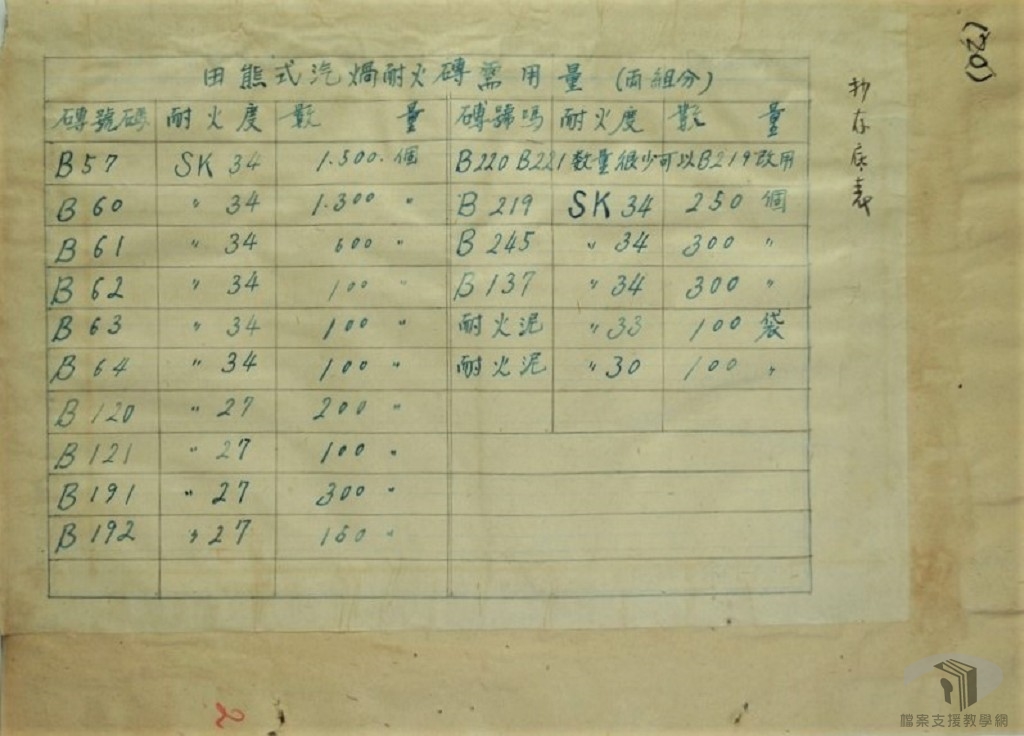 田熊式汽焗耐火磚需用量(両組分)
磚號碼 耐火度 數量 磚號嗎 耐火度 數量
B57 SK 34 1.500.個 B220 B221 数量很少可以B219改用
B 60 〃 34 1.300 〃 B 219 SK 34 250 個
B 61 〃 34 600 〃 B 245 〃 34 300 〃
B 62 〃 34 100 〃 B 137 〃 34 300 〃
B 63 〃 34 100 〃 耐火泥 〃 33 100 袋
B 64 〃 34 100 〃 耐火泥 〃 30 100 〃
B 120 〃 27 200 〃
B 121 〃 27 100 〃
B 191 〃 27 300 〃
B 192 〃 27 150 〃
抄存底表
(20)
2
檔案支援教學網